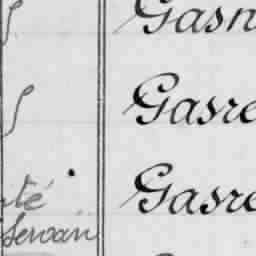 Gasn
Gasre
té Gasre
Servan